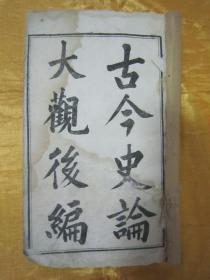 古今史論
大觀後編